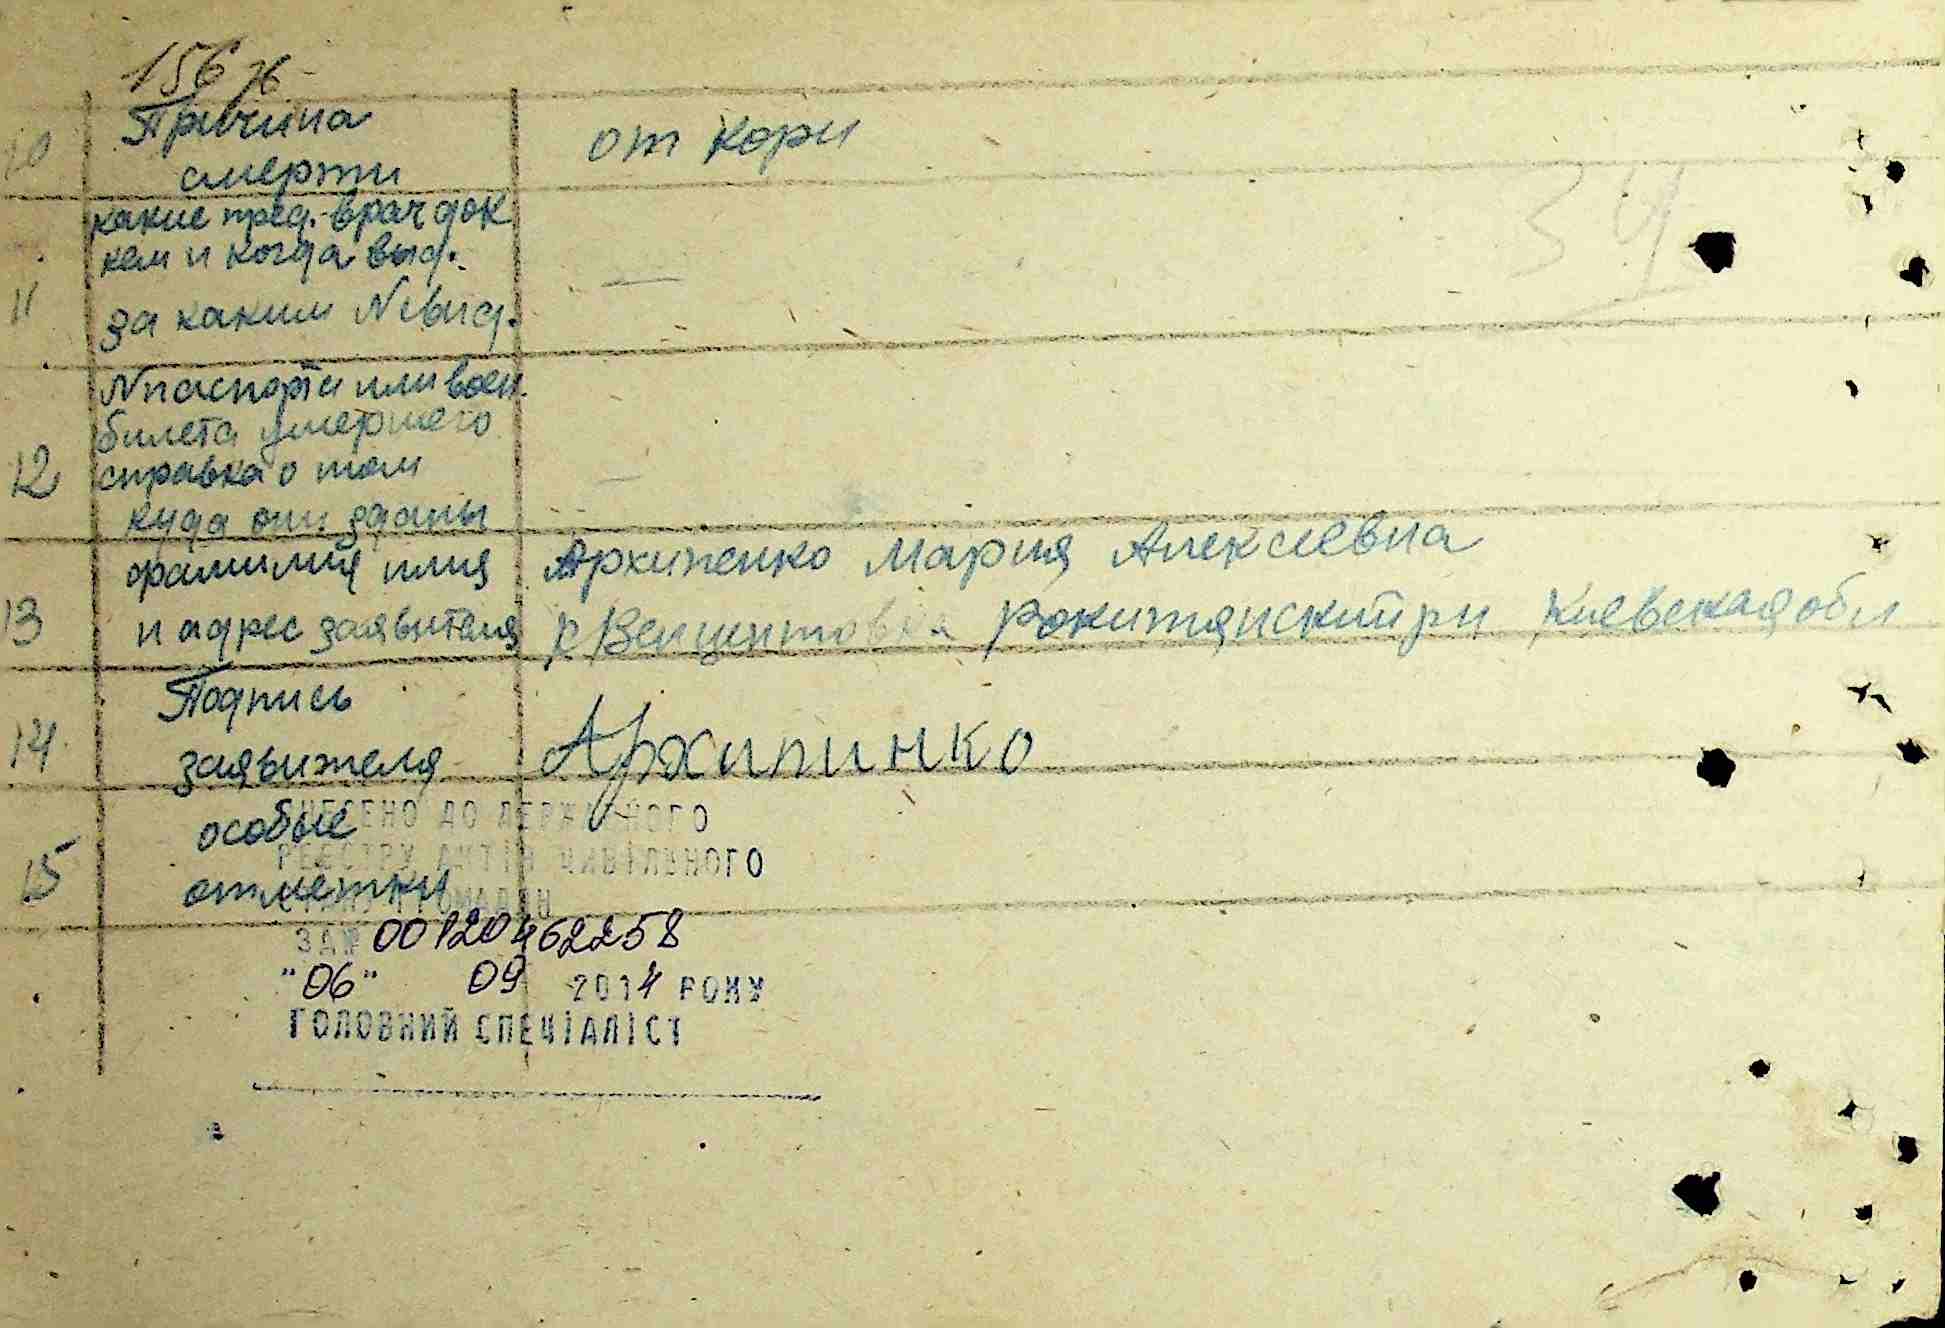 156 76
10 Причина
смерти
от кори
какие пред. врач док
кем и когда выд.
11 за каким №выд.
—
№паспорта или воен.
билета умершего
12 справка о том
куда они зданы
—
фамилия имя
13 и адрес заявителя
Архипенко Мария Алексеевна
Рокитянский рн Киевская обл
34
14 Подпись
заявителя
Архипинко
15 особые
отметки
ВНЕСЕНО ДО ДЕРЖАВНОГО
РЕЄСТРУ АКТІВ ЦИВІЛЬНОГО
СТАНУ ГРОМАДЯН
ЗА № 00120462258
"06" 09 2014 РОКУ
ГОЛОВНИЙ СПЕЦІАЛІСТ